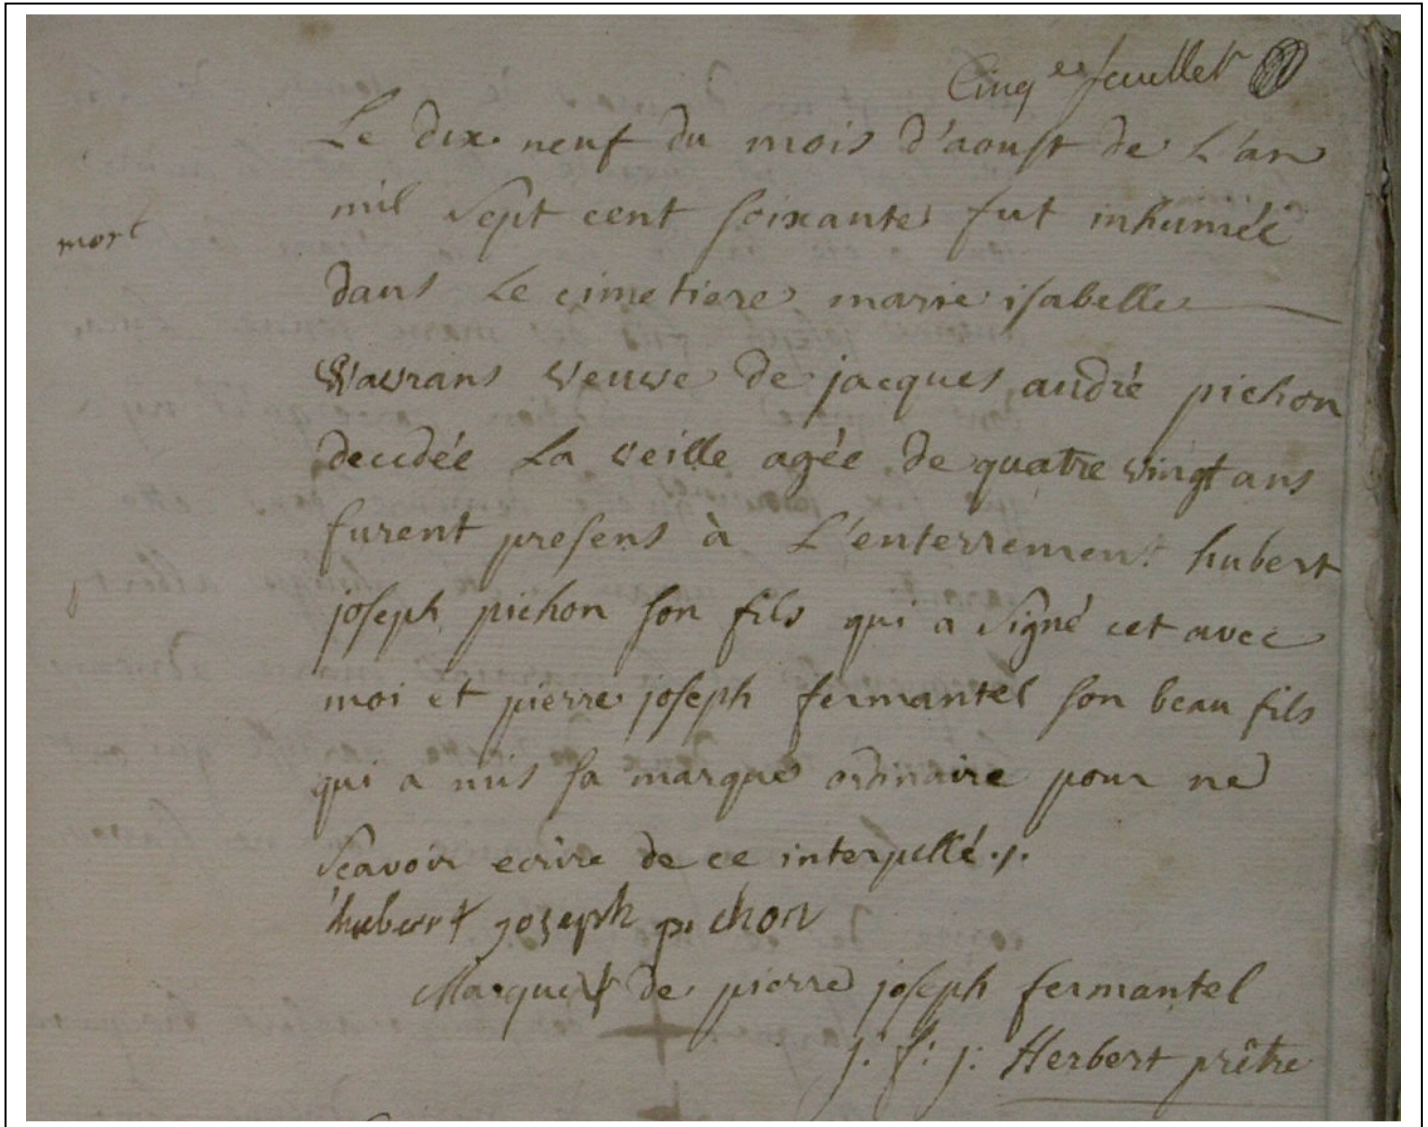 Cinq es feuillet
Le dix neuf du mois d'aoust de L'an
mort
mil Sept cent soixante fut inhumée
dans Le cimetiere marie isabelle
Wavrans veuve de jacques andré pichon
decidée La veille agée de quatre vingt ans
furent presens à L'enterrement hubert
joseph pichon son fils qui a Signé cet avec
moi et pierre joseph fermantel son beau fils
qui a mis sa marque ordinaire pour ne
Scavoir ecrire de ce interpellé ./.
hubert jozeph pichon
Marque de pierre joseph fermantel
j: f: j: Herbert prêtre